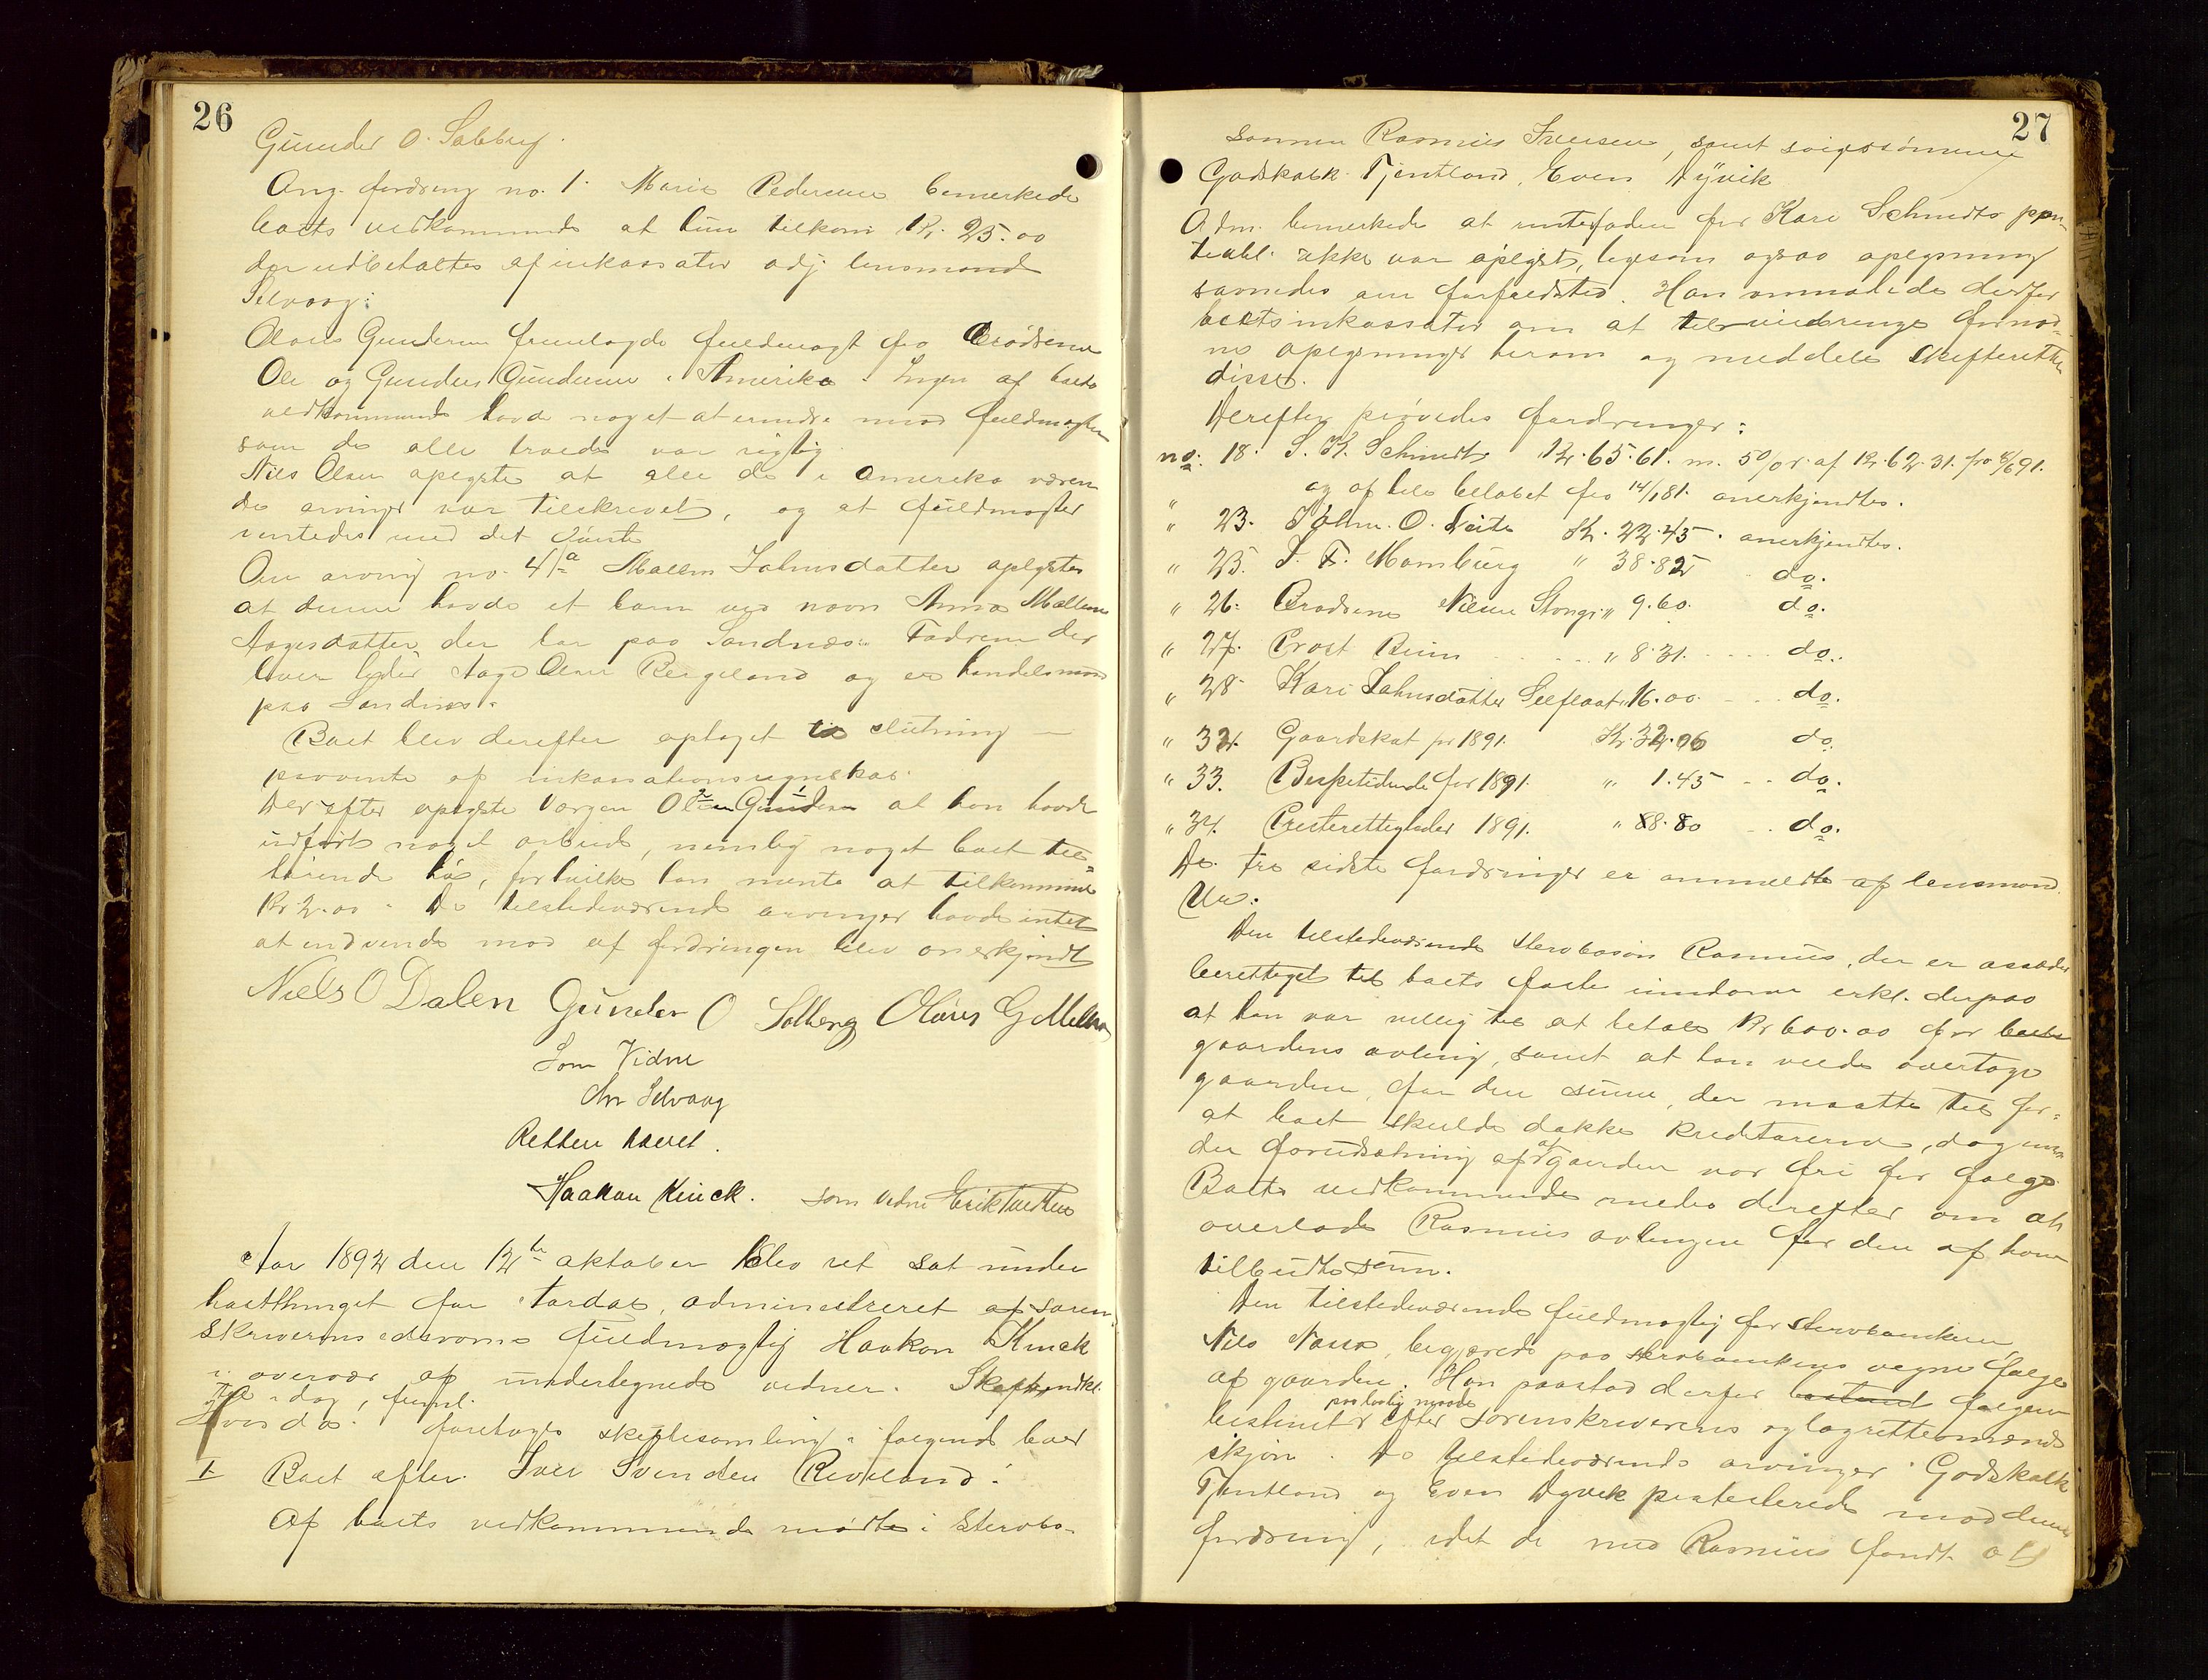 26
Gunder O. Solberg.
Ang. fordring no. 1. Marie Pedersen bemerkede
boets vedkommende at hun tilkom Kr. 25.00
der udbetaltes af inkassator adj. lensmand
Selvaag:
Olaus Gundersen fremlagde fuldmagt fra Brødrene
Ole og Gunder Gundersen i Amerika. Ingen af boets
vedkommende havde noget at erindre mod fuldmagten
som de alle troede var rigtig.
Nils Olsen oplyste at alle de i Amerika væren-
de arvinger var tilskrevet, og at fuldmagter
ventedes med det første
Om arving no. 4/a Mallene Johnsdatter oplystes
at denne havde et barn ved navn Anna Mallene
Aagesdatter, der bor paa Sandnæs. Faderen der
lever heder Aage Olsen Reigeland og er handelsmand
paa Sandnæs.
Boet blev derefter optaget til slutning
paavente af inkassationsregnskab.
Derefter oplyste vergen Olsen Gundersen at han havde
udført noget arbeide, nemlig noget boet til-
hørende hø, for hvilke han mente at tilkomme
Kr 2.00. De tilstedeværende arvinger havde intet
at indvende mod at fordringen blev anerkjendt
Niels O Dalen Gunder O Solberg Olaus G Melkeraa
Som Vidne
Chr Selvaag
Retten hævet.
Haakon Kinck. som vidne Erik Tveten
Aar 1892 den 12te oktober blev ret sat under
høstthinget for Aardal, administreret af soren-
skriverens edsvorne fuldmægtig Haakon Kinck
i overvær af undertegnede vidner. Skafteindkl.
til i dag, freml.
Hvorda foretoges skiftesamling i følgende boer
I Boet efter Iver Svendsen Riveland:
Af boets vedkommende mødte: Stervbo-
27
sønnen Rasmus Iversen, samt svigersønnerne
Godskalk Tjentland, Even Dyvik
Adm. bemerkede at rentefoden for Kari Schmidts pan-
teobl. ikke var oplyst, ligesom ogsaa oplysning
savnedes om forfaldstid. Han anmodede derfor
boets inkassator om at tilveiebringe fornød-
ne oplysninger herom og meddele skifteretten
disse.
Derefter prøvedes fordringer:
no: 18. S. K. Schmidt Kr. 65.61. m. 5 0/0 r. af Kr. 62.31. fra 8/6 91.
" og af hele beløbet fra 14/1 81. anerkjendtes.
" 23. John. O. Leite Kr. 22.45. anerkjendtes.
" 25. J. F. Homburg " 38.82 do.
" 26. Brødrene Nilsen Stangs. " 9.60. do.
" 27. Prost Bruun " 8.31. do.
" 28. Kari Johnsdatter Selflaat " 16.00. do.
" 32. Gaardskat for 1891. Kr. 32.06 do.
" 33. Bispetiende for 1891. " 1.45 do.
" 34. Presterettigheder 1891. " 8.80 do.
De tre sidste fordringer er anmeldte af lensmand
Ur.
Den tilstedeværende stervbosøn Rasmus, der er aasædes
berettiget til boets faste eiendomme erkl. derpaa
at han var villig til at betale Kr 600.00 for boets
gaardens avling, samt at han vilde overtage
gaarden, for den sum, der maatte til for-
at boet skulde dække kreditorerne, dog un-
der forudsætning af at gaarden var fri for følge.
Boets vedkommende enedes derefter om at
overlade Rasmus avlingen for den af ham
tilbudte sum.
Den tilstedeværende fuldmægtig for stervboenken
Nils Nessa, begjærede paa stervboenkens vegne følge
af gaarden. Han paastod derfor bestemt følgen
paa lovlig maade
bestemt efter sorenskriverens og lagrettemænds
skjøn. De tilstedeværende arvinger Godskalk
Tjentland og Even Dyvik protesterede mod denne
fordring, idet de med Rasmus fandt at